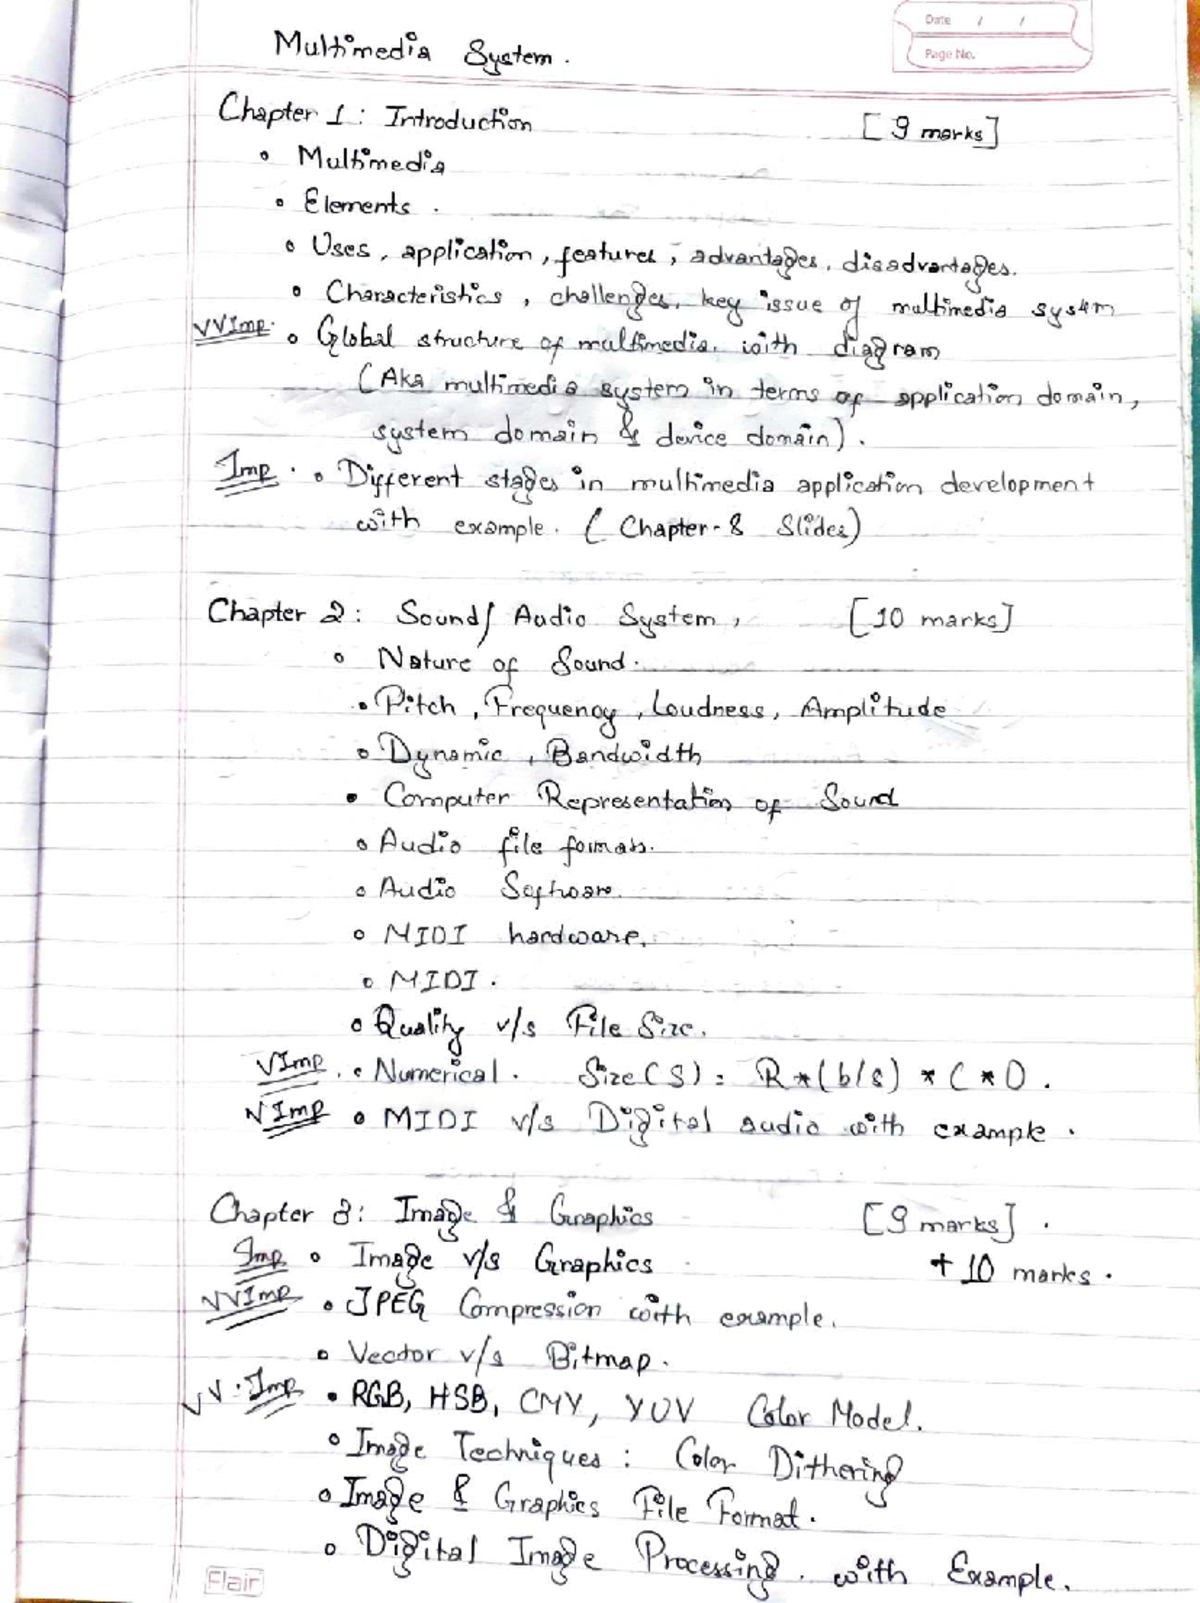 Date / /
Page No.
Multimedia System.
Chapter 1: Introduction [9 marks]
• Multimedia
• Elements.
• Uses, application, features, advantages, disadvantages.
• Characteristics, challenges, key issue of multimedia system
VVImp. • Global structure of multimedia. with diagram
(Aka multimedia system in terms of application domain,
system domain & device domain).
Imp. • Different stages in multimedia application development
with example. (Chapter-8 Slides)
Chapter 2: Sound/Audio System, [10 marks]
• Nature of Sound.
• Pitch, Frequency, Loudness, Amplitude
• Dynamic, Bandwidth
• Computer Representation of Sound
• Audio file formats.
• Audio Software.
• MIDI hardware.
• MIDI.
• Quality v/s File Size.
VImp. • Numerical. Size(S): R*(b/8) * C * D.
VImp • MIDI v/s Digital audio with example.
Chapter 3: Image & Graphics [9 marks].
Imp • Image v/s Graphics + 10 marks.
VVImp • JPEG Compression with example.
• Vector v/s Bitmap.
VV.Imp • RGB, HSB, CMY, YUV Color Model.
• Image Techniques: Color Dithering
• Image & Graphics File Format.
• Digital Image Processing. with Example.
Flair